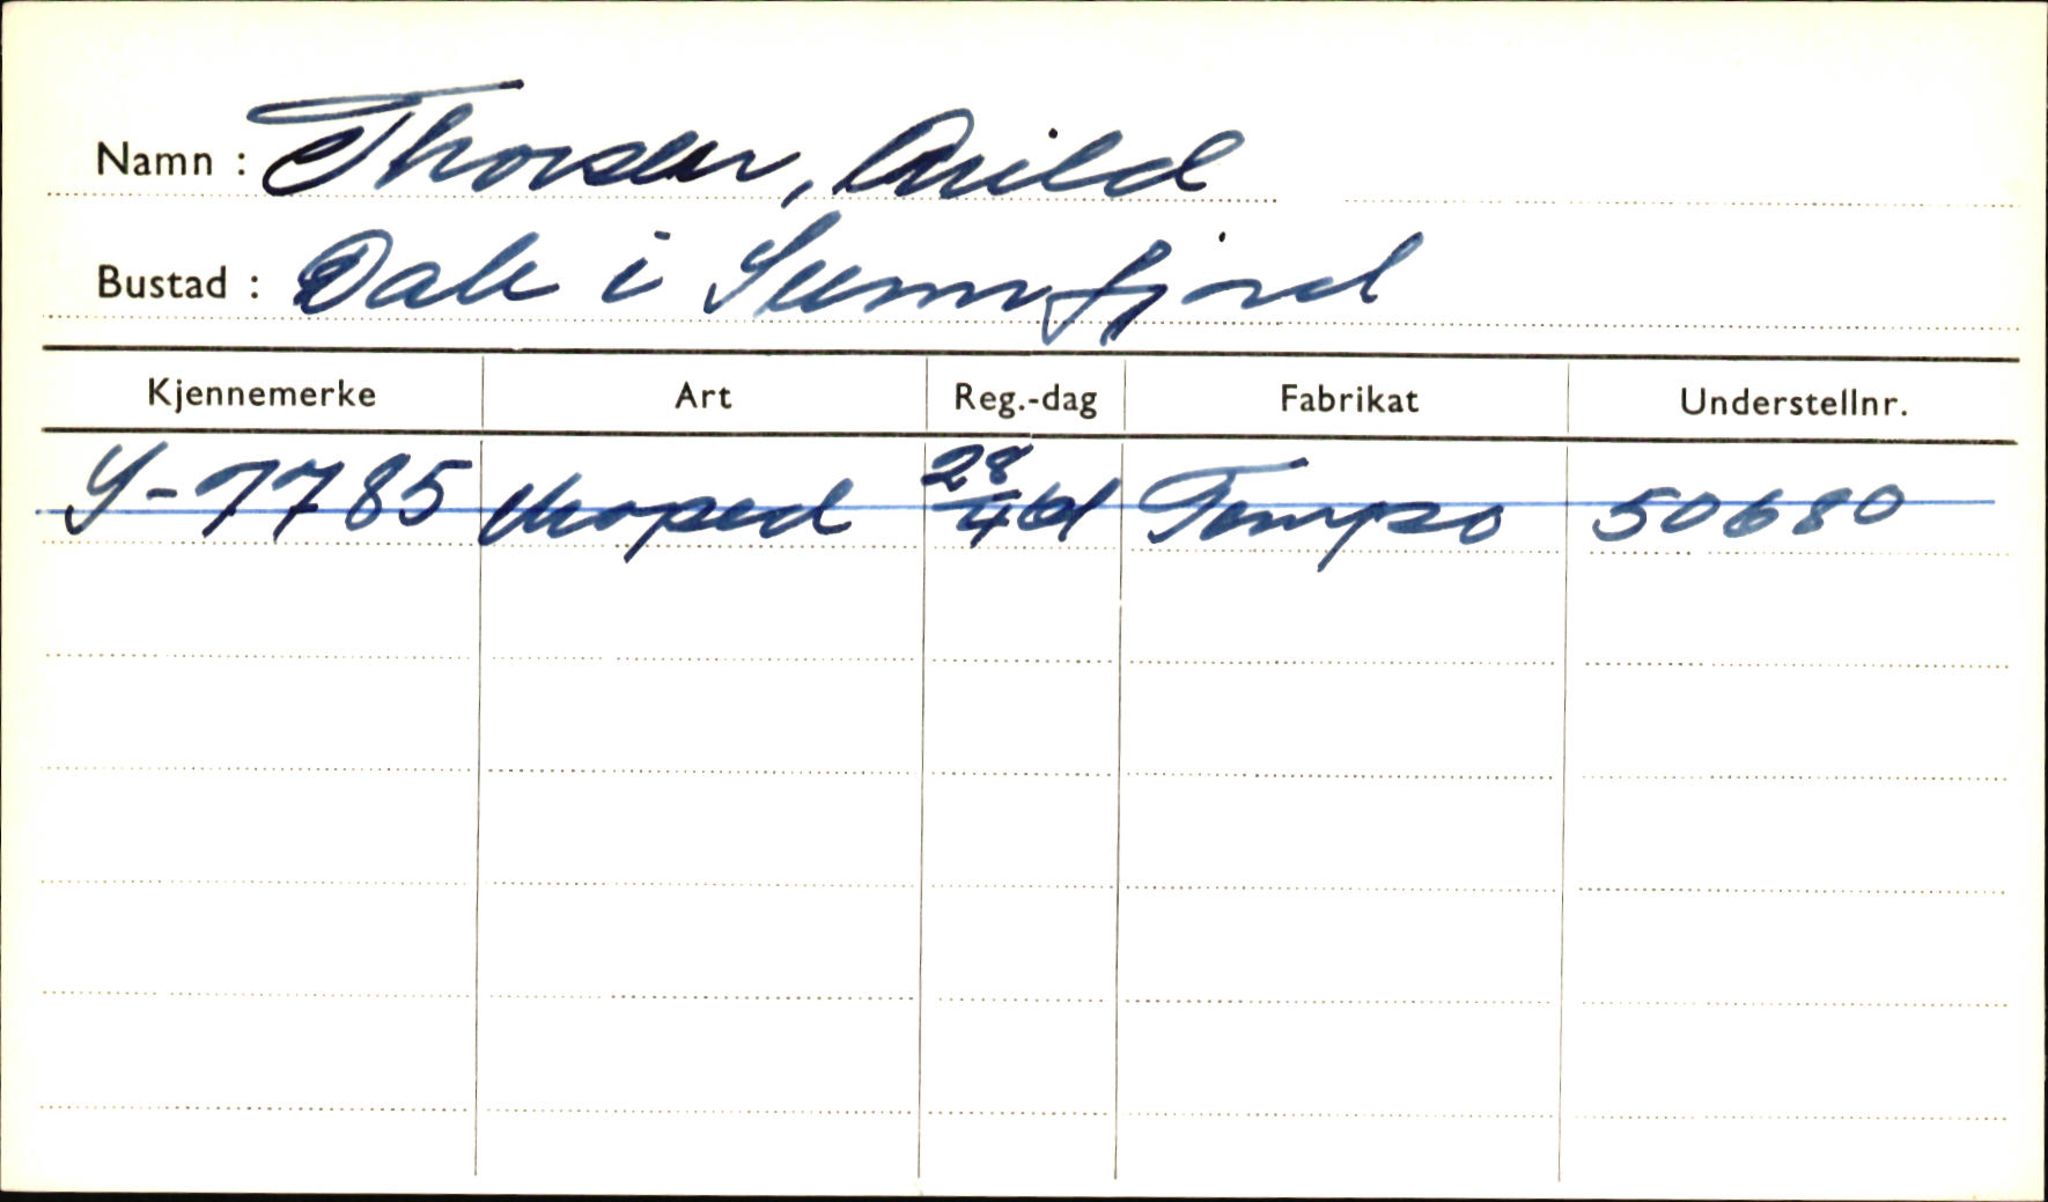 Namn : Thorsen, Arild
Bustad : Dale i Sunnfjord
Kjennemerke Art Reg.-dag Fabrikat Understellnr.
S-7785 Moped 28/4 61 Tempo 50680